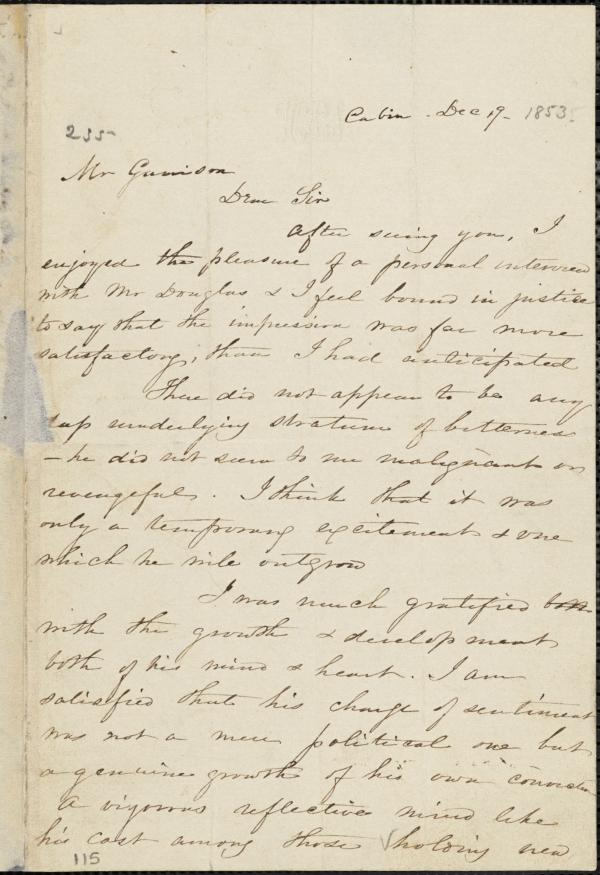 Cabin. Dec 19- 1853.
235
Mr Garrison
Dear Sir
After seeing you, I
enjoyed the pleasure of a personal interview
with Mr Douglas & I feel bound in justice
to say that the impression was far more
satisfactory, than I had anticipated
There did not appear to be any
deep underlying stratum of bitterness
- he did not seem to me malignant or
revengeful. I think that it was
only a temporary excitement & one
which he will outgrow
I was much gratified
with the growth & development
both of his mind & heart. I am
satisfied that his change of sentiment
was not a mere political one but
a genuine growth of his own conviction
A vigorous reflective mind like
his cast among those holding new
115